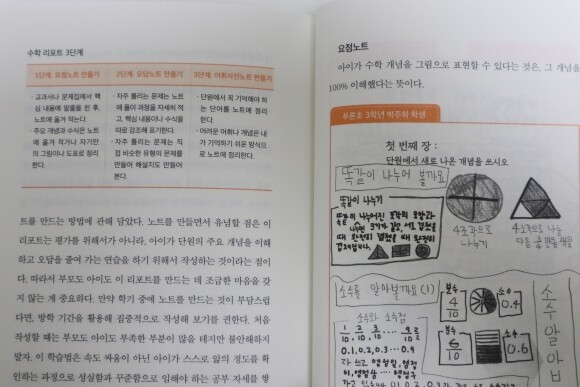 수학 리포트 3단계
1단계. 요점노트 만들기
· 교과서나 문제집에서 핵
심 내용에 밑줄을 친 후,
노트에 옮겨 적는다.
· 주요 개념과 수식은 노트
에 옮겨 적거나 자기만
의 그림이나 도표로 정리
한다.
2단계. 오답노트 만들기
· 자주 틀리는 문제는 노트
에 풀이 과정을 자세히 적
고, 핵심 내용이나 수식을
따로 강조해 표기한다.
· 자주 틀리는 문제는 직
접 비슷한 유형의 문제를
만들어 해설지도 만들어
본다.
3단계. 어휘사전노트 만들기
· 단원에서 꼭 기억해야 하
는 단어를 노트에 정리
한다.
· 어려운 어휘나 개념은 내
가 기억하기 쉬운 방식으
로 노트에 정리한다.
트를 만드는 방법에 관해 담았다. 노트를 만들면서 유념할 점은 이
리포트는 평가를 위해서가 아니라, 아이가 단원의 주요 개념을 이해
하고 오답을 줄여 가는 연습을 하기 위해서 작성하는 것이라는 점이
다. 따라서 부모도 아이도 이 리포트를 만드는 데 조급한 마음을 갖
지 않는 게 중요하다. 만약 학기 중에 노트를 만드는 것이 부담스럽
다면, 방학 기간을 활용해 집중적으로 작성해 보기를 권한다. 처음
작성할 때는 부모도 아이도 부족한 부분이 많을 테지만 불안해하지
말자. 이 학습법은 속도 싸움이 아닌 아이가 스스로 앎의 정도를 확
인하는 과정으로 성실함과 꾸준함으로 임해야 하는 공부 자세를 방
요점노트
아이가 수학 개념을 그림으로 표현할 수 있다는 것은, 그 개념을
100% 이해했다는 뜻이다.
푸른초 3학년 박주희 학생
첫 번째 장 :
단원에서 새로 나온 개념을 쓰시오
똑같이 나누어 볼까요
똑같이 나누기
똑같이 나누어진 조각의 모양과
크기가 같고, 서로 겹쳤을
때 완전히
4조각으로
나누기
4조각으로 나눔
소수를 알아볼까요 (1)
소수와 소수점
1/10 2/10 3/10 ··· 9/10 를
0.1, 0.2, 0.3 ··· 0.9
분수
4/10
소수
0.4
분수
6/10
소수
0.6
소수알아